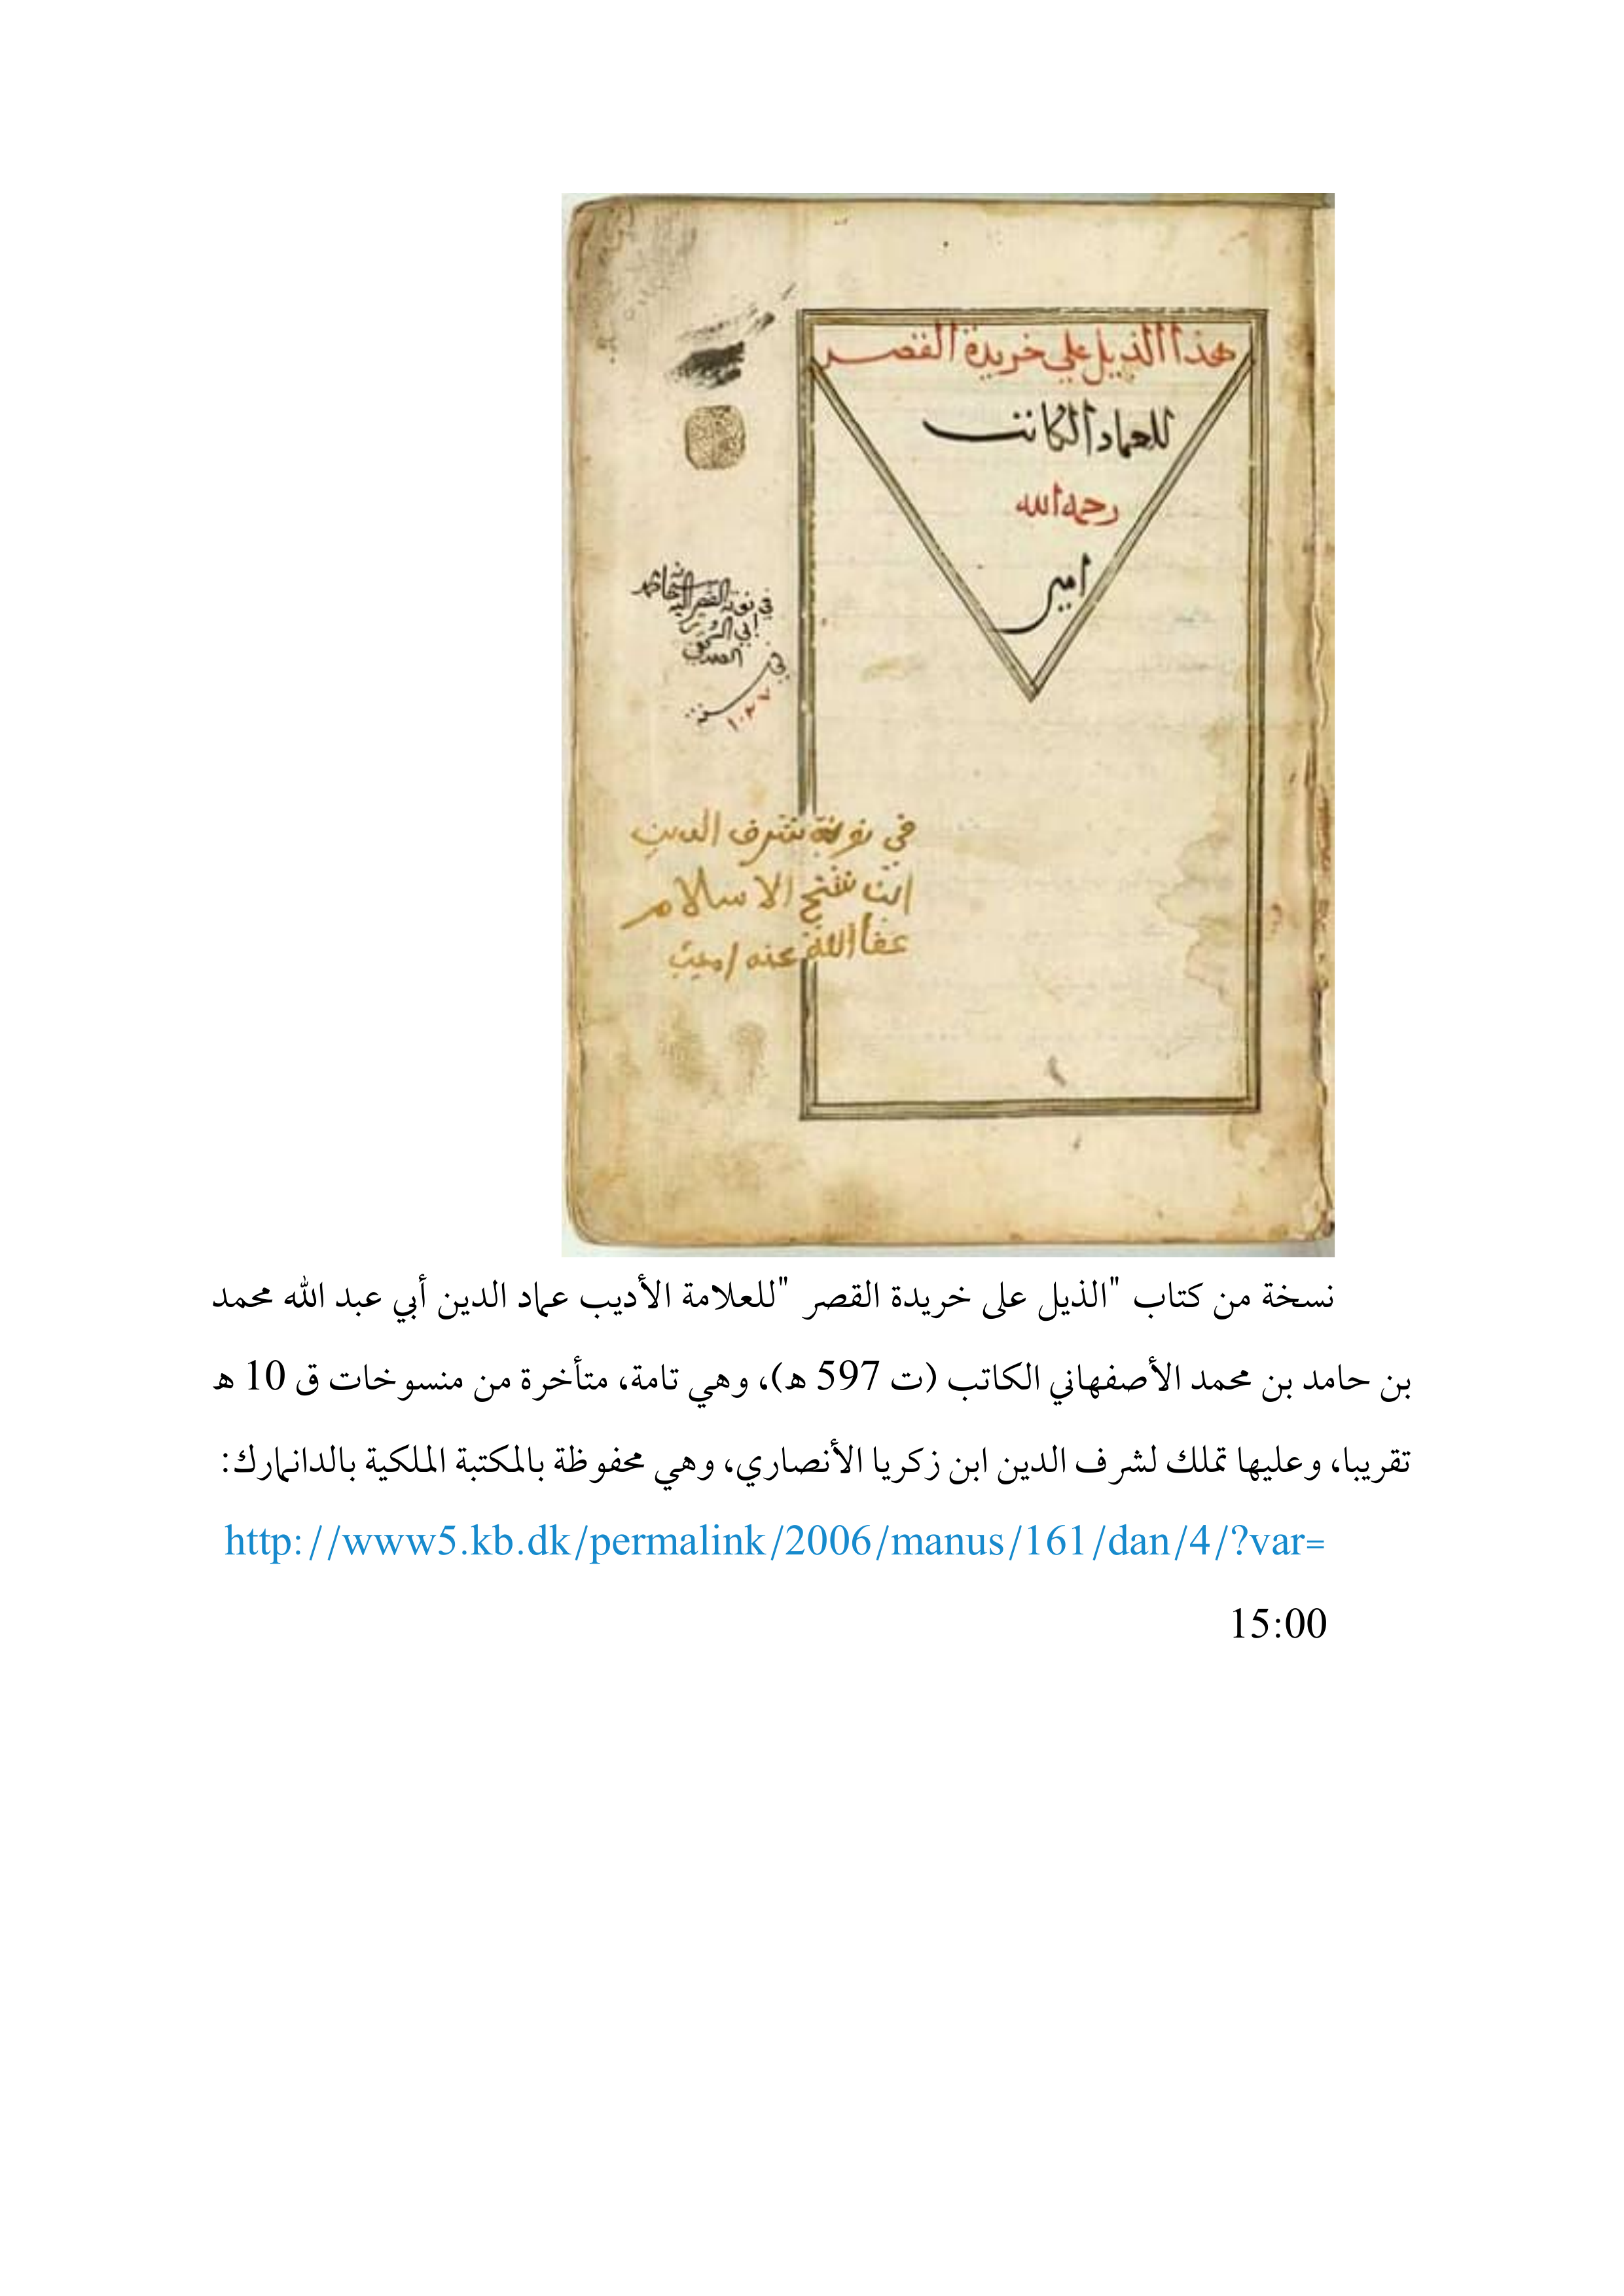 هذا الذيل علي خريدة القصر
للعماد الكاتب
رحمه الله
امين
في نوبة الفقير اليه
ابي
الصديقي
في
سنة
١٠٢٧
في نوبة شرف الدين
ابن شيخ الاسلام
عفا الله عنه امين
نسخة من كتاب "الذيل على خريدة القصر "للعلامة الأديب عماد الدين أبي عبد الله محمد
بن حامد بن محمد الأصفهاني الكاتب (ت 597 ه)، وهي تامة، متأخرة من منسوخات ق 10 ه
تقريبا، وعليها تملك لشرف الدين ابن زكريا الأنصاري، وهي محفوظة بالمكتبة الملكية بالدانمارك:
http://www5.kb.dk/permalink/2006/manus/161/dan/4/?var=
15:00